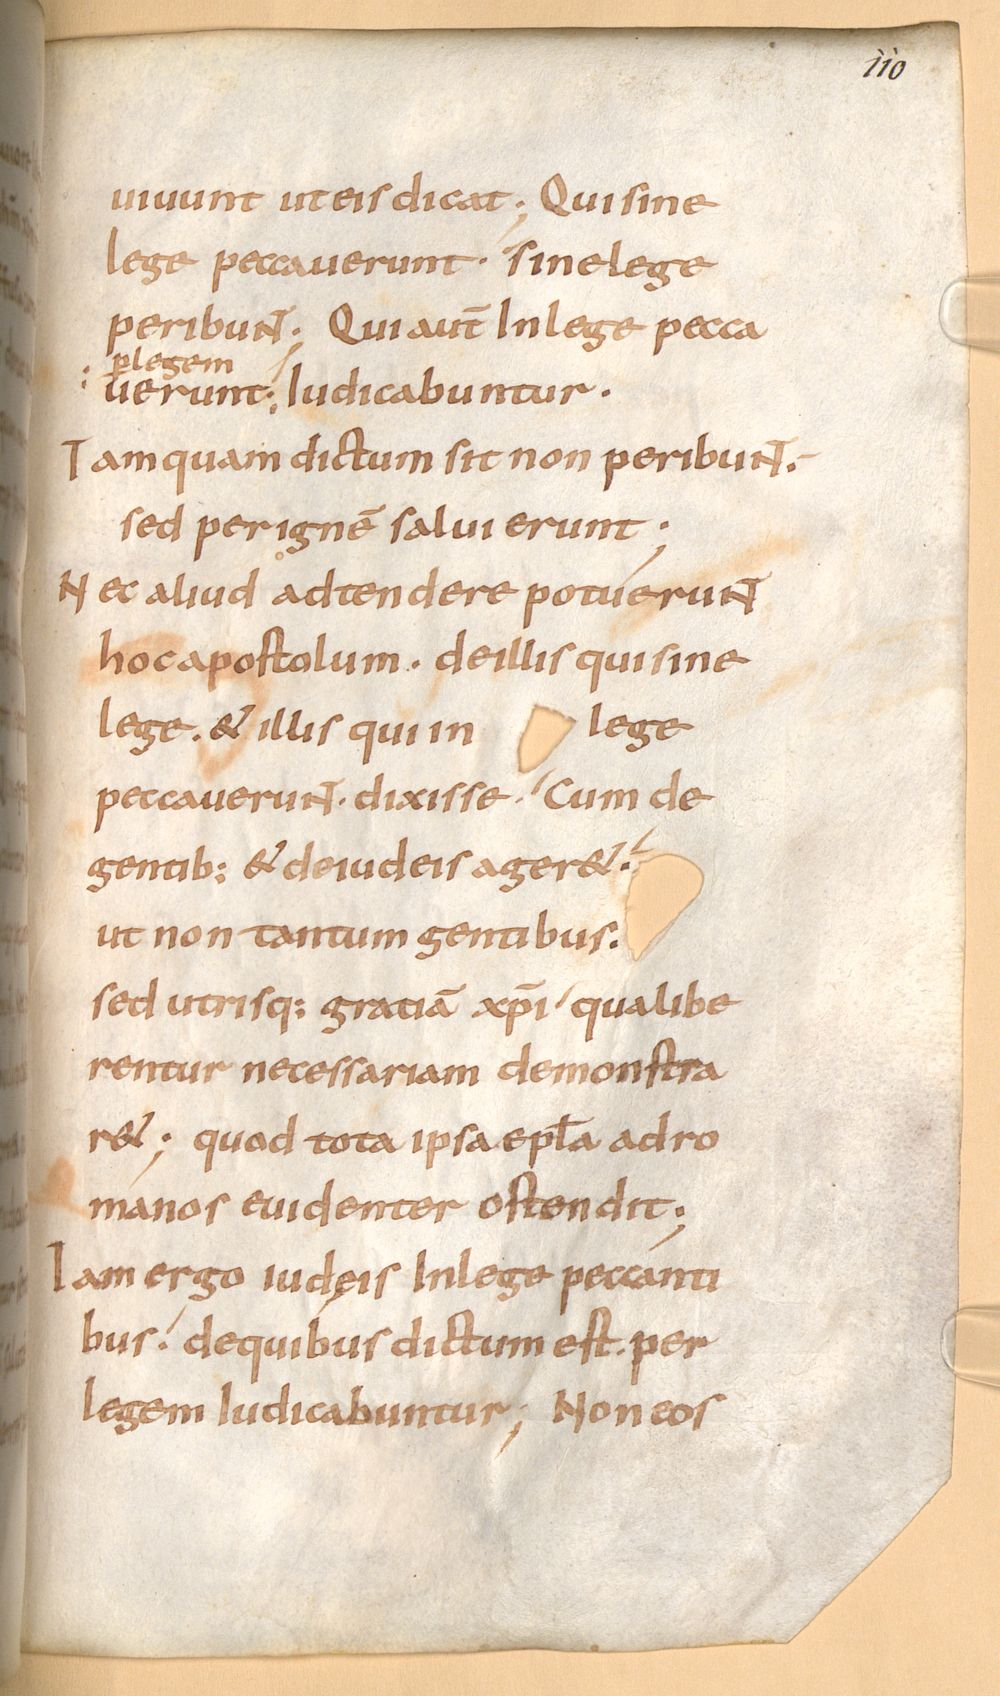 110
uiuunt ut eis dicat; Qui sine
lege peccauerunt· sine lege
peribunt; Qui aut̄ In lege pecca
: p̲legem
uerunt; Iudicabuntur·
Tamquam dictum sit non peribunt.
sed per ignē salui erunt;
Nec aliud adtendere potuerunt
hoc apostolum· de illis qui sine
lege. & illis qui in lege
peccauerunt· dixisse· Cum de
gentib; & de iudeis ager&·
ut non tantum gentibus.
sed utrisq; gratiā xp̄i qua libe
rentur necessariam demonstra
r&; quod tota ipsa epl̄a ad ro
manos euidenter ostendit;
Iam ergo iudeis In lege peccanti
bus· de quibus dictum est. per
legem Iudicabuntur; Non eos